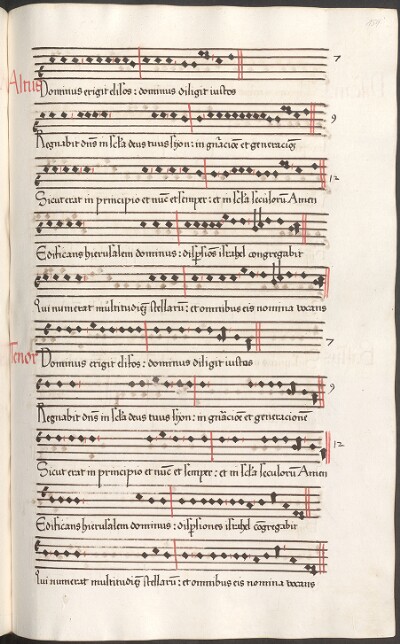 Altus
Dominus erigit elisos : dominus diligit iustos
7
Regnabit dns in scla deus tuus syon : in gnacioe et generacioe
9
Sicut erat in principio et nuc et semper : et in scla seculoru Amen
12
Edificans hierusalem dominus : dispsioes israhel congregabit
Qui numerat multitudie stellaru : et omnibus eis nomina vocans
Tenor
Dominus erigit elisos : dominus diligit iustos
7
Regnabit dns in scla deus tuus syon : in gnacioe et generacione
9
Sicut erat in principio et nuc et semper : et in scla seculoru Amen
12
Edificans hierusalem dominus : dispsiones israhel cogregabit
Qui numerat multitudie stellaru : et omnibus eis nomina vocans